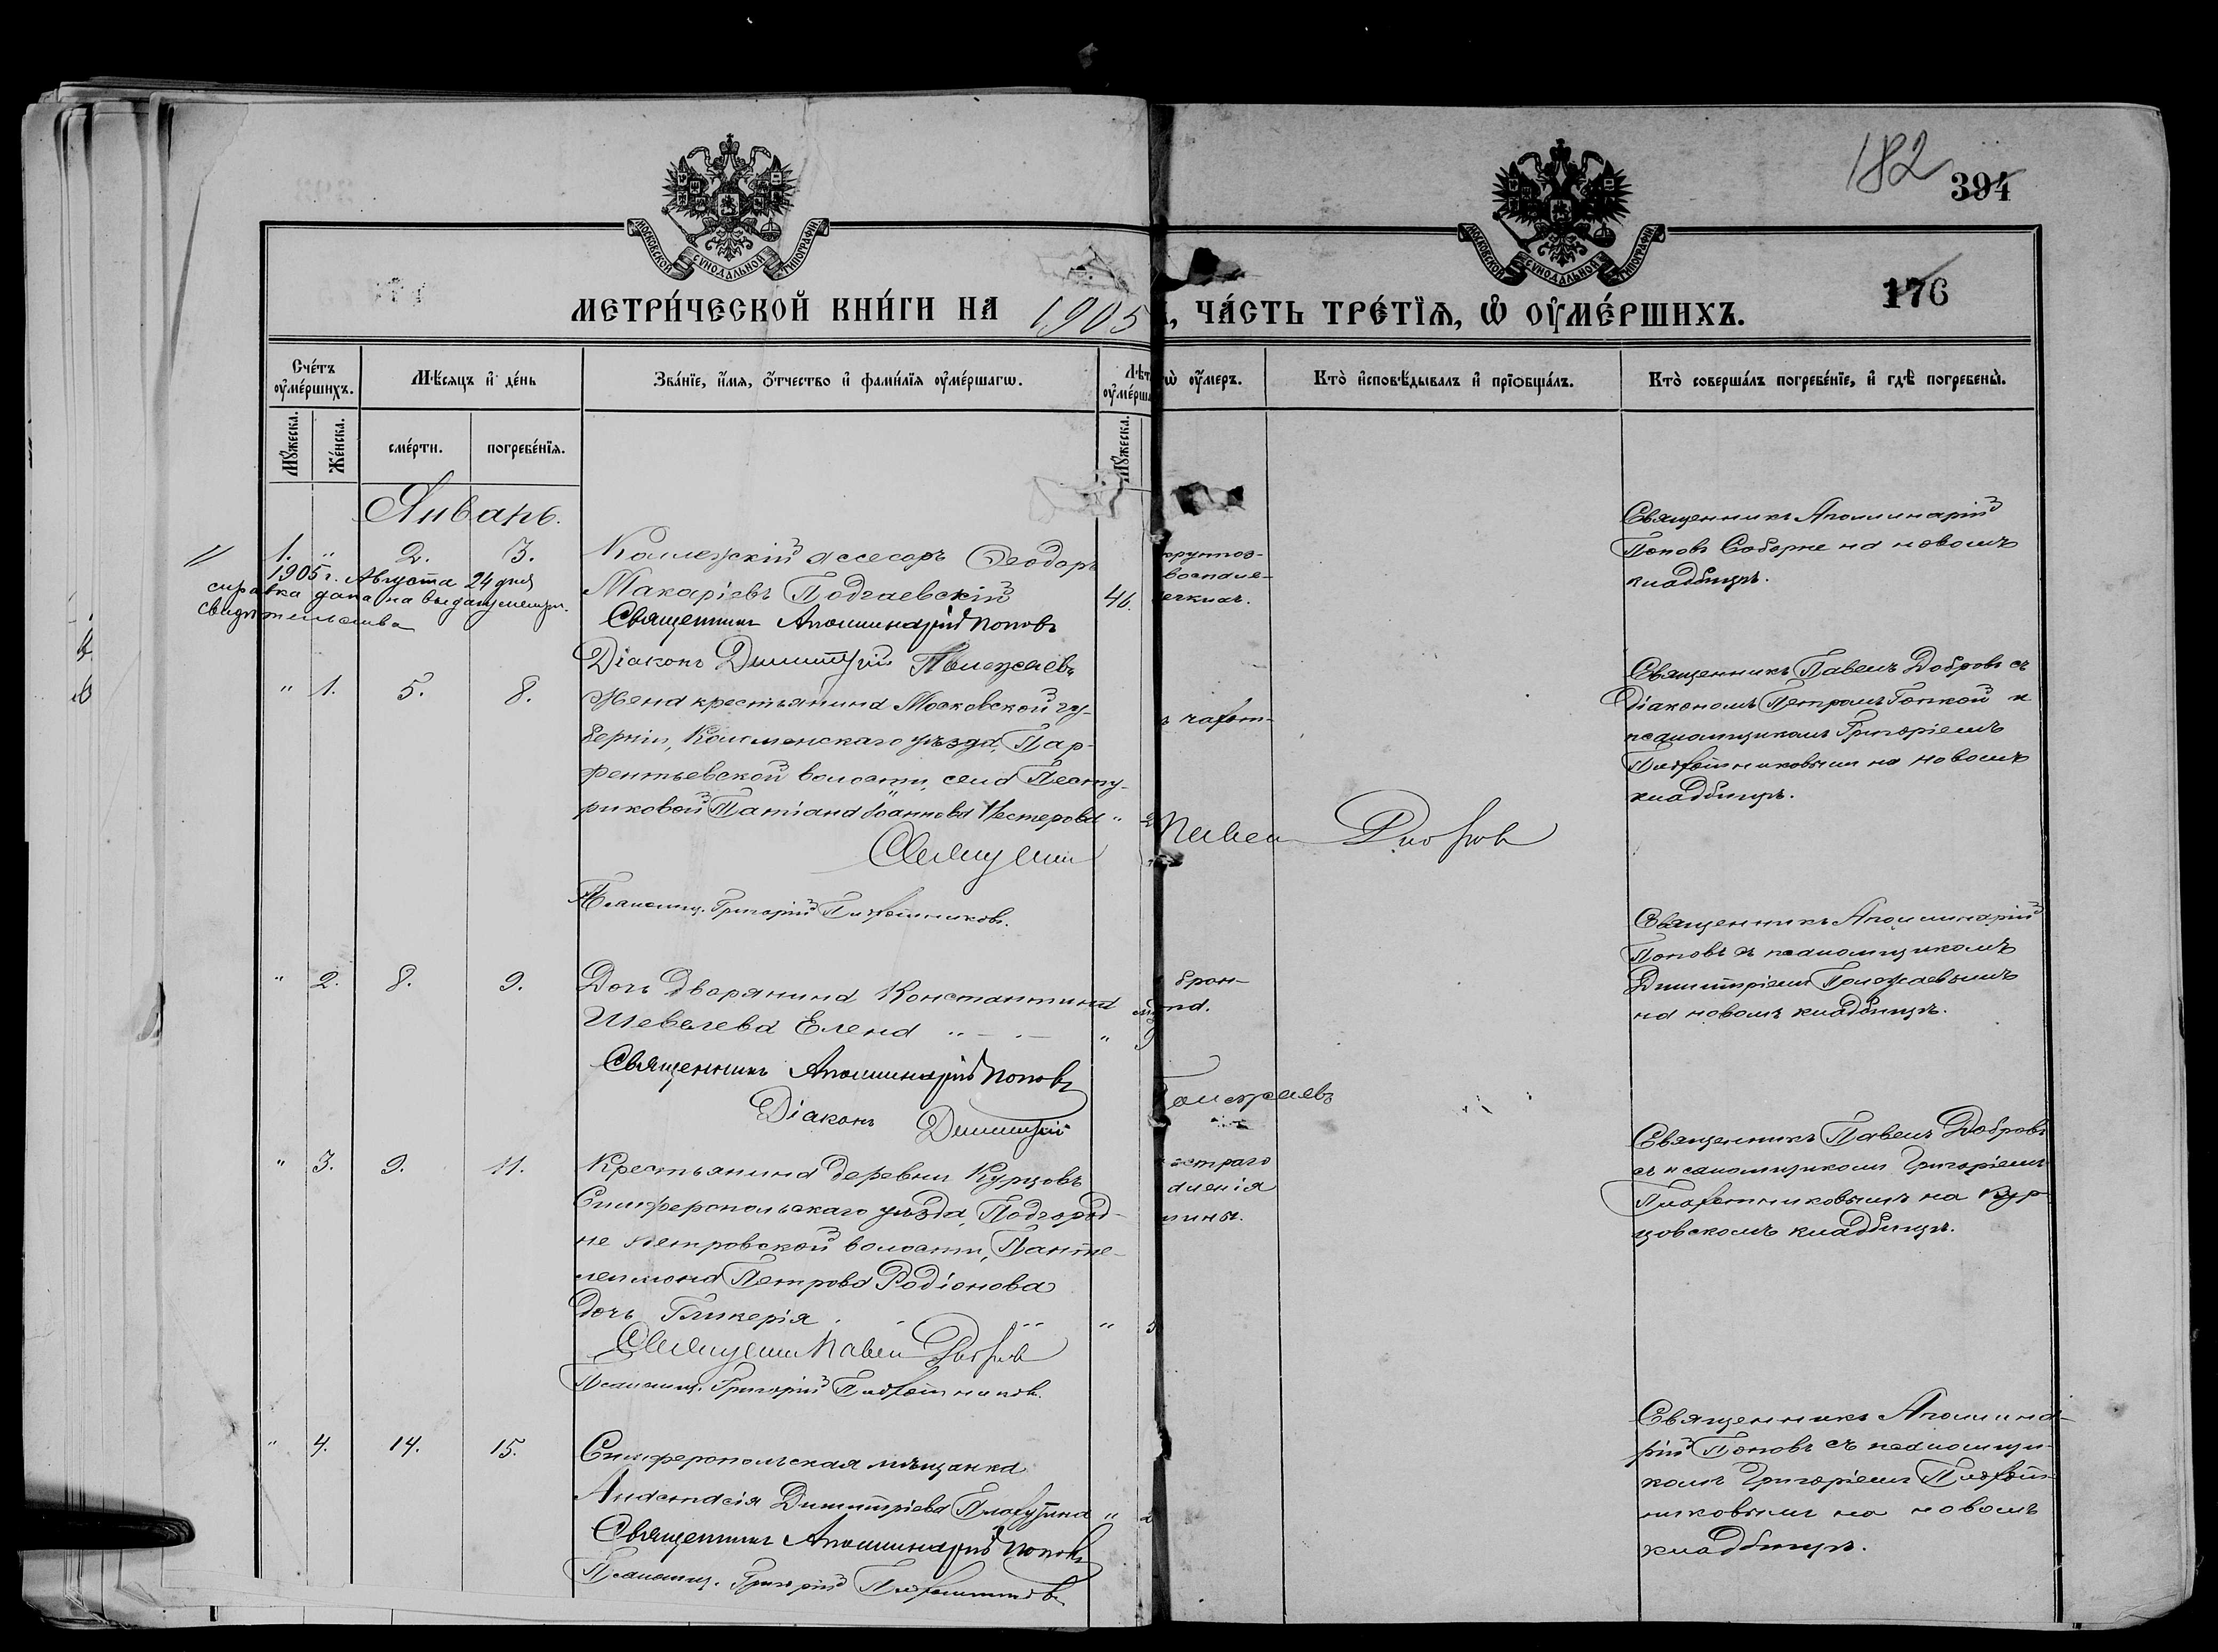 182
394
176
МОСКОВСКОЙ СУНОДАЛЬНОЙ ТИПОГРАФІИ
МОСКОВСКОЙ СУНОДАЛЬНОЙ ТИПОГРАФІИ
МЕТРИ́ЧЕСКОЙ КНИ́ГИ НА 1905
, ЧА́СТЬ ТРЕ́ТІѦ, Ѽ ОУМЕ́РШИХЪ.
Сче́тъ оумéршихъ.
Мѣ́сяцъ и҆ де́нь
Зва́нїе, и҆́мя, ѻ҆́тчество и҆ фами́лїя оумéршагѡ.
ѡ҆ оу҆́меръ.
Кто̀ и҆сповѣ́дывалъ и҆ прїѡбща́лъ.
Кто̀ соверша́лъ погребе́нїе, и҆ гдѣ̀ погребены̀.
Мꙋ́жеска.
Же́нска.
сме́рти.
погребе́нїя.
Мꙋ́жеска.
Январь.
1. " 2. 3.
1905 г. Августа 24 дня
справка дана на выдачу метри.
свидѣтельства
Коллежскій ассесоръ Ѳеодоръ
Макаріевъ Подгаевскій 46.
Священникъ Аполлинарій Поповъ
Діаконъ Димитрій Полежаевъ
крупоз-
воспале-
легкихъ.
Священникъ Аполлинарій
Поповъ Соборне на новомъ
кладбищѣ.
" 1. 5. 8.
Жена крестьянина Московской гу-
берніи, Коломенскаго уѣзда, Пар-
фентьевской волости, села Пестру-
риковой Татіана Іоаннова Нестерова "
Священникъ Павелъ Добровъ
Псаломщ. Григорій Плахотниковъ.
чахот-
Священникъ Павелъ Добровъ съ
Діакономъ Петромъ Гопкой и
псаломщикомъ Григоріемъ
Плахотниковымъ на новомъ
кладбищѣ.
" 2. 8. 9.
Дочь Дворянина Константина
Шевелева Елена "
Священникъ Аполлинарій Поповъ
Діаконъ Димитрій Полежаевъ
брон-
Священникъ Аполлинарій
Поповъ съ псаломщикомъ
Димитріемъ Полежаевымъ
на новомъ кладбищѣ.
" 3. 9. 11.
Крестьянина деревни Курцовъ
Симферопольскаго уѣзда, Подгород-
не Петровской волости, Панте-
леимона Петрова Родіонова
дочь Гликерія "
Священникъ Павелъ Добровъ
Псаломщ. Григорій Плахотниковъ.
остраго
Священникъ Павелъ Добровъ
съ псаломщикомъ Григоріемъ
Плахотниковымъ на Кур-
цовскомъ кладбищѣ.
" 4. 14. 15.
Симферопольская мѣщанка
Анастасія Димитріева "
Священникъ Аполлинарій Поповъ
Псаломщ. Григорій Плахотниковъ
Священникъ Аполлина-
рій Поповъ съ псаломщи-
комъ Григоріемъ Плахот-
никовымъ на новомъ
кладбищѣ.